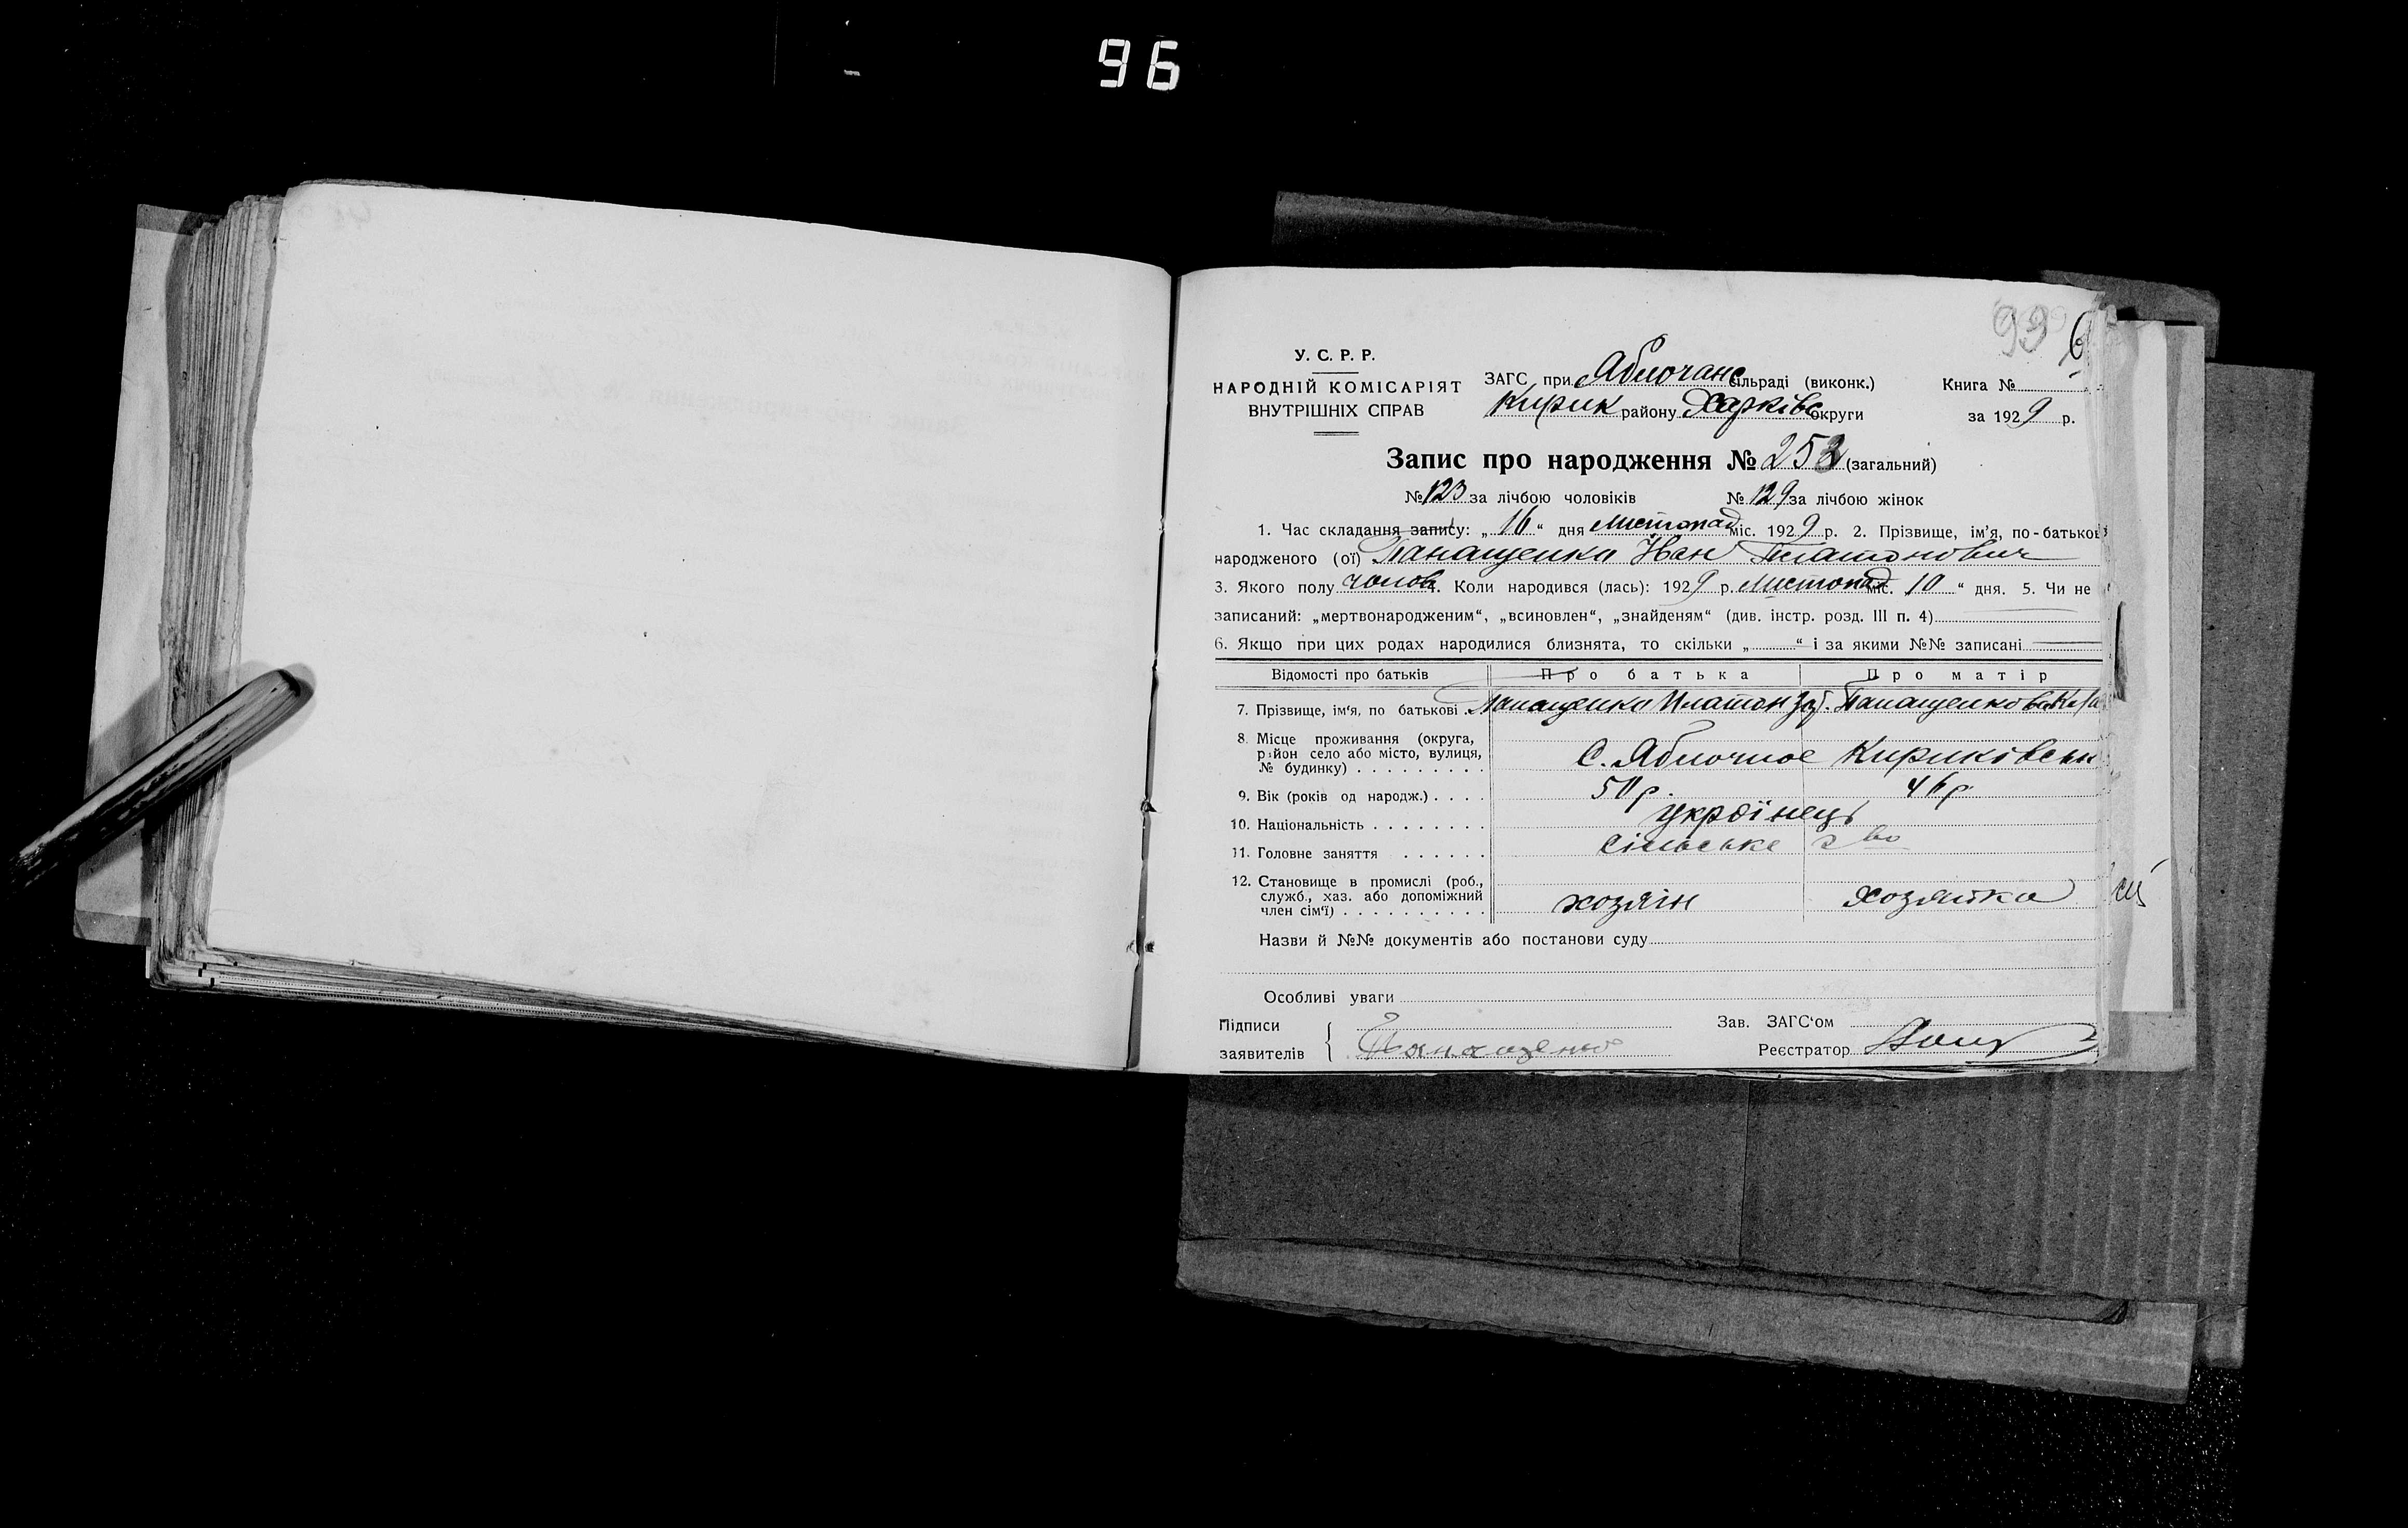 96
93
У. С. Р. Р.
НАРОДНІЙ КОМІСАРІЯТ
ВНУТРІШНІХ СПРАВ
ЗАГС при Яблочанс сільраді (виконк.)
Кирик району Харківс округи
Книга №
за 1929 р.
Запис про народження № 252 (загальний)
№ 123 за лічбою чоловіків № 129 за лічбою жінок
1. Час складання запису: „ 16 “ дня Листопад міс. 1929 р. 2. Прізвище, ім’я, по-батькові
народженого (ої) Панащенко Иван Платонович
3. Якого полу чолов. 4. Коли народився (лась): 1929 р. Листопад міс. 10 “ дня. 5. Чи не
записаний: „мертвонародженим“, „всиновлен“, „знайденям“ (див. інстр. розд. III п. 4)
6. Якщо при цих родах народилися близнята, то скільки „ “ і за якими №№ записані
Відомості про батьків Про батька Про матір
7. Прізвище, ім‘я, по батькові Панащенко Платон Панащенкова
8. Місце проживання (округа,
район село або місто, вулиця,
№ будинку) С. Яблочное Кириківськ
9. Вік (років од народж.) 50 р. 46 р
10. Національність україінець
11. Головне заняття сільське г во
12. Становище в промислі (роб.,
служб., хаз. або допоміжний
член сім‘ї) хозяін хозяйка
Назви й №№ документів або постанови суду
Особливі уваги
Підписи
заявителів Панащенко
Зав. ЗАГС‘ом
Реєстратор